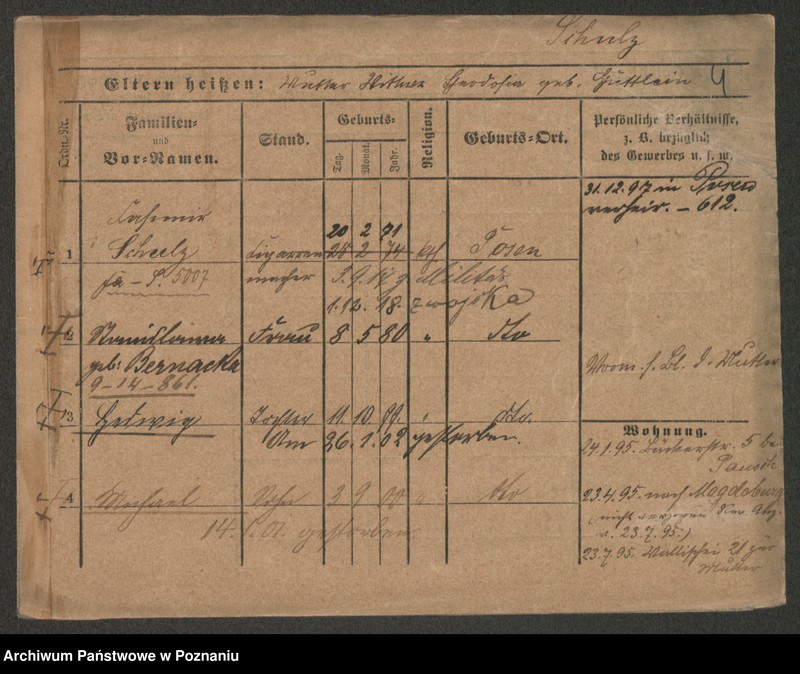 Schulz
Eltern heißen: Mutter Wittwe geb. Güttlein 4
Ordn.-Nr.
Familien- und Vor-Namen.
Stand.
Geburts-
Tag. Monat. Jahr.
Religion.
Geburts-Ort.
Persönliche Verhältnisse, z. B. bezüglich des Gewerbes u. s. w.
31.12.97 in Posen
verheir. – 612.
Kasimir
20 2 71
1 Schulz Cigarren 20 2 74 kth Posen
Fa – S. 5007 macher Militär
1.12.18. z wojska
2 Stanislawa Frau 8 5 80 " dto
geb: Bernacka
9–14–861.
Vorm. s. Bl. d. Mutter
3 Hedwig Tochter 11. 10. 99. " dto.
Am 26.1.02 gestorben.
Wohnung.
24.1.95. Bäckerstr. 5 be
Pausch
4 Michael Sohn 3 9 00 " dto
14. 01. gestorben.
23.4.95. nach Magdeburg
(nicht
v. 23.7.95.)
23.7.95. Wallischei 21 zur
Mutter
Archiwum Państwowe w Poznaniu